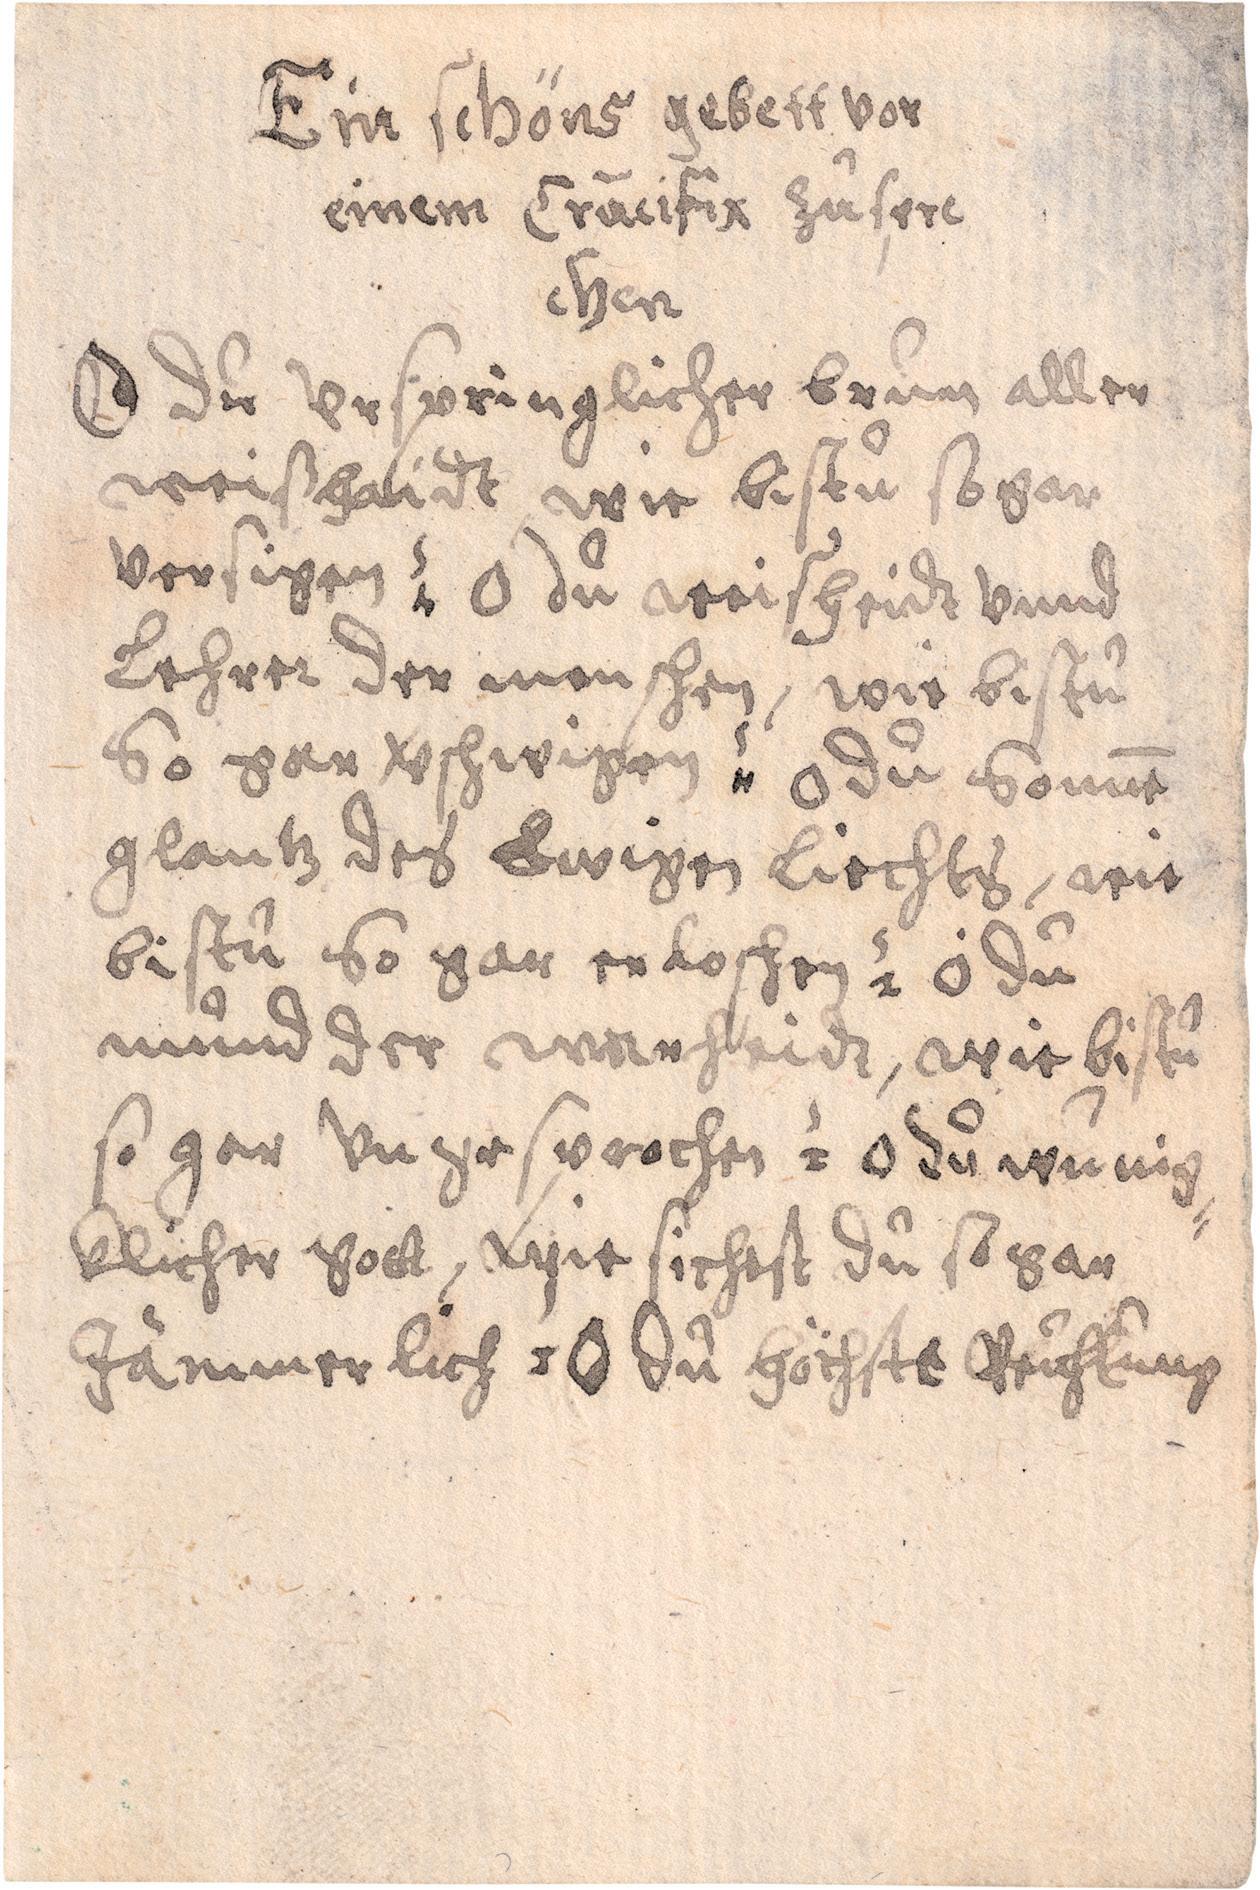 Ein schöns gebett vor
einem Crucifix zů spre
chen
O dů vrspringlicher brůnn aller
weißhaidt wie bistů so gar
versigen? O dů weißheidt vnnd
Lehrer der menschen, wie bistů
so gar vschwigen? o dů Sonne
glantz des Ewigen Liechts, wie
bistů so gar erloschen? o dů
můnd der warheidt, wie bistů
so gar vngesprochen? o dů wůnig
klicher gott, wie sichest dů so gar
Jämmerlich? O dů höchste